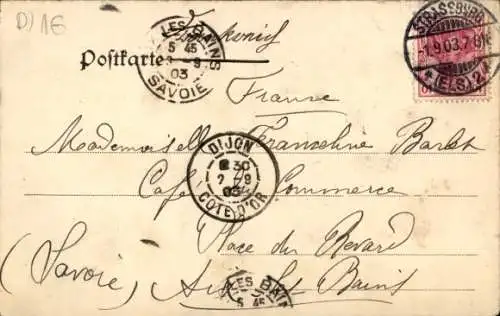 D) 16
Frankreich
Postkarte
LES BAINS
5 45
9
03
SAVOIE
STRASSBURG
-1.9.03.7
* (ELS) 2
France
Mademoiselle Francoline Barlet
DIJON
8 30
7 9
03
COTE D'OR
Café Commerce
Place du Revard
(Savoie) Aix Les Bains
LES BAINS
5 45